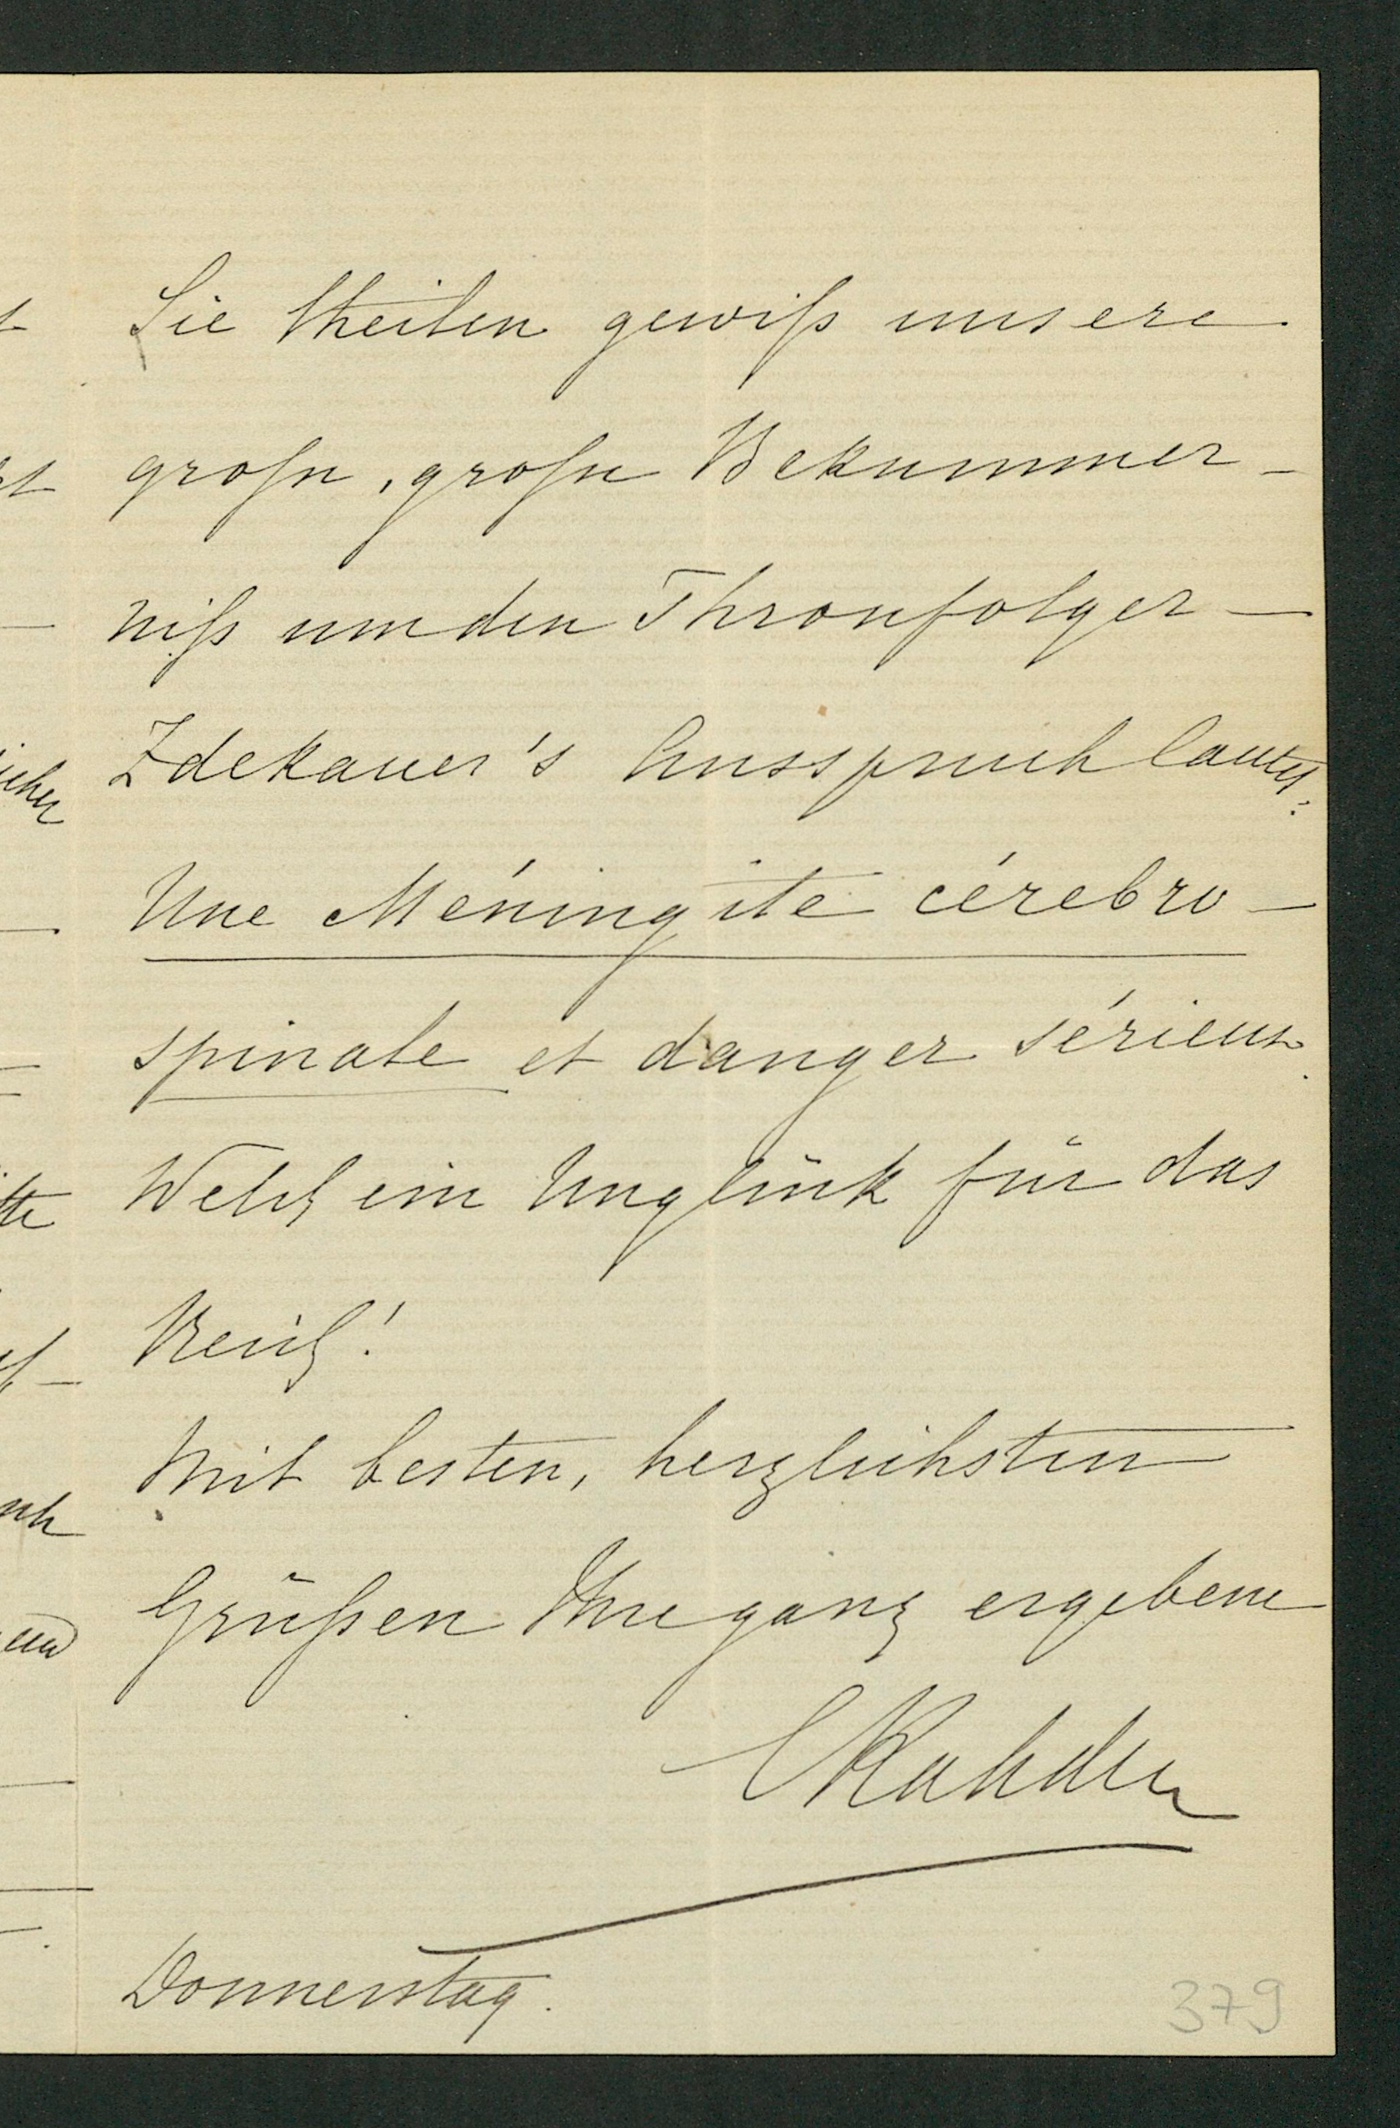 Sie theilen gewiß unsere
große, große Bekummer-
niß um den Thronfolger —
Zdekauer's Ausspruch lautet:
Une Méningite cérebro-
spinale et danger sérieux.
Welch ein Unglück für das
Reich!
Mit besten, herzlichsten
Grüßen Ihre ganz ergebene
ERahden
Donnerstag.
379